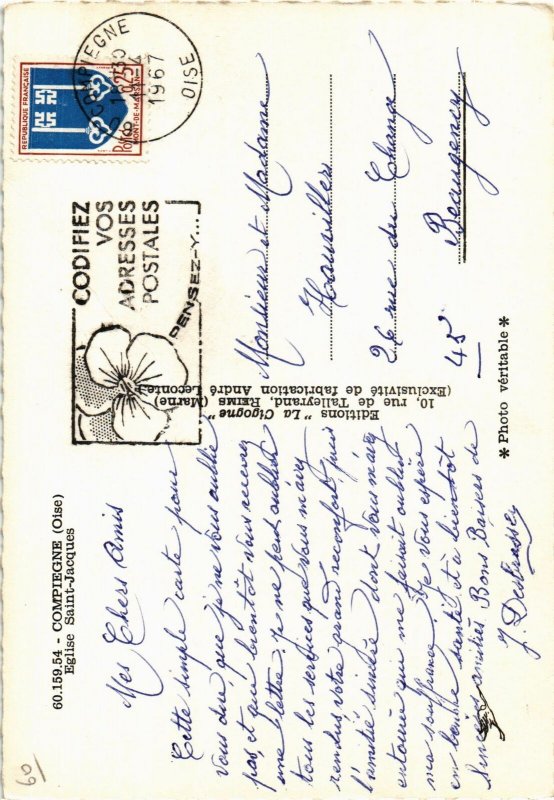 60.159.54 - COMPIEGNE (Oise)
Eglise Saint-Jacques
Mes Chers Amis
Cette simple carte pour
vous dire que je ne vous oublie
pas, et que bientôt vous recevrez
une lettre. Je ne peut oublier
tous les services que vous m'avez
rendus votre grand reconfort, puis
l'amitié sincère dont vous m'avez
entourée qui me faisait oublier
ma souffrance. Je vous espère
en bonne santé et à bientôt
amitiés Bons Baisers de
J.
Editions "La Cigogne"
10, rue de Talleyrand, REIMS (Marne)
(Exclusivité de fabrication André Leconte)
* Photo véritable *
CODIFIEZ
VOS
ADRESSES
POSTALES
PENSEZ-Y...
COMPIEGNE
1967
OISE
REPUBLIQUE FRANÇAISE
0,25
Postes
MONT-DE-MARSAN
Monsieur et Madame
Hauviller
26 rue du Change
Beaugency
45
60